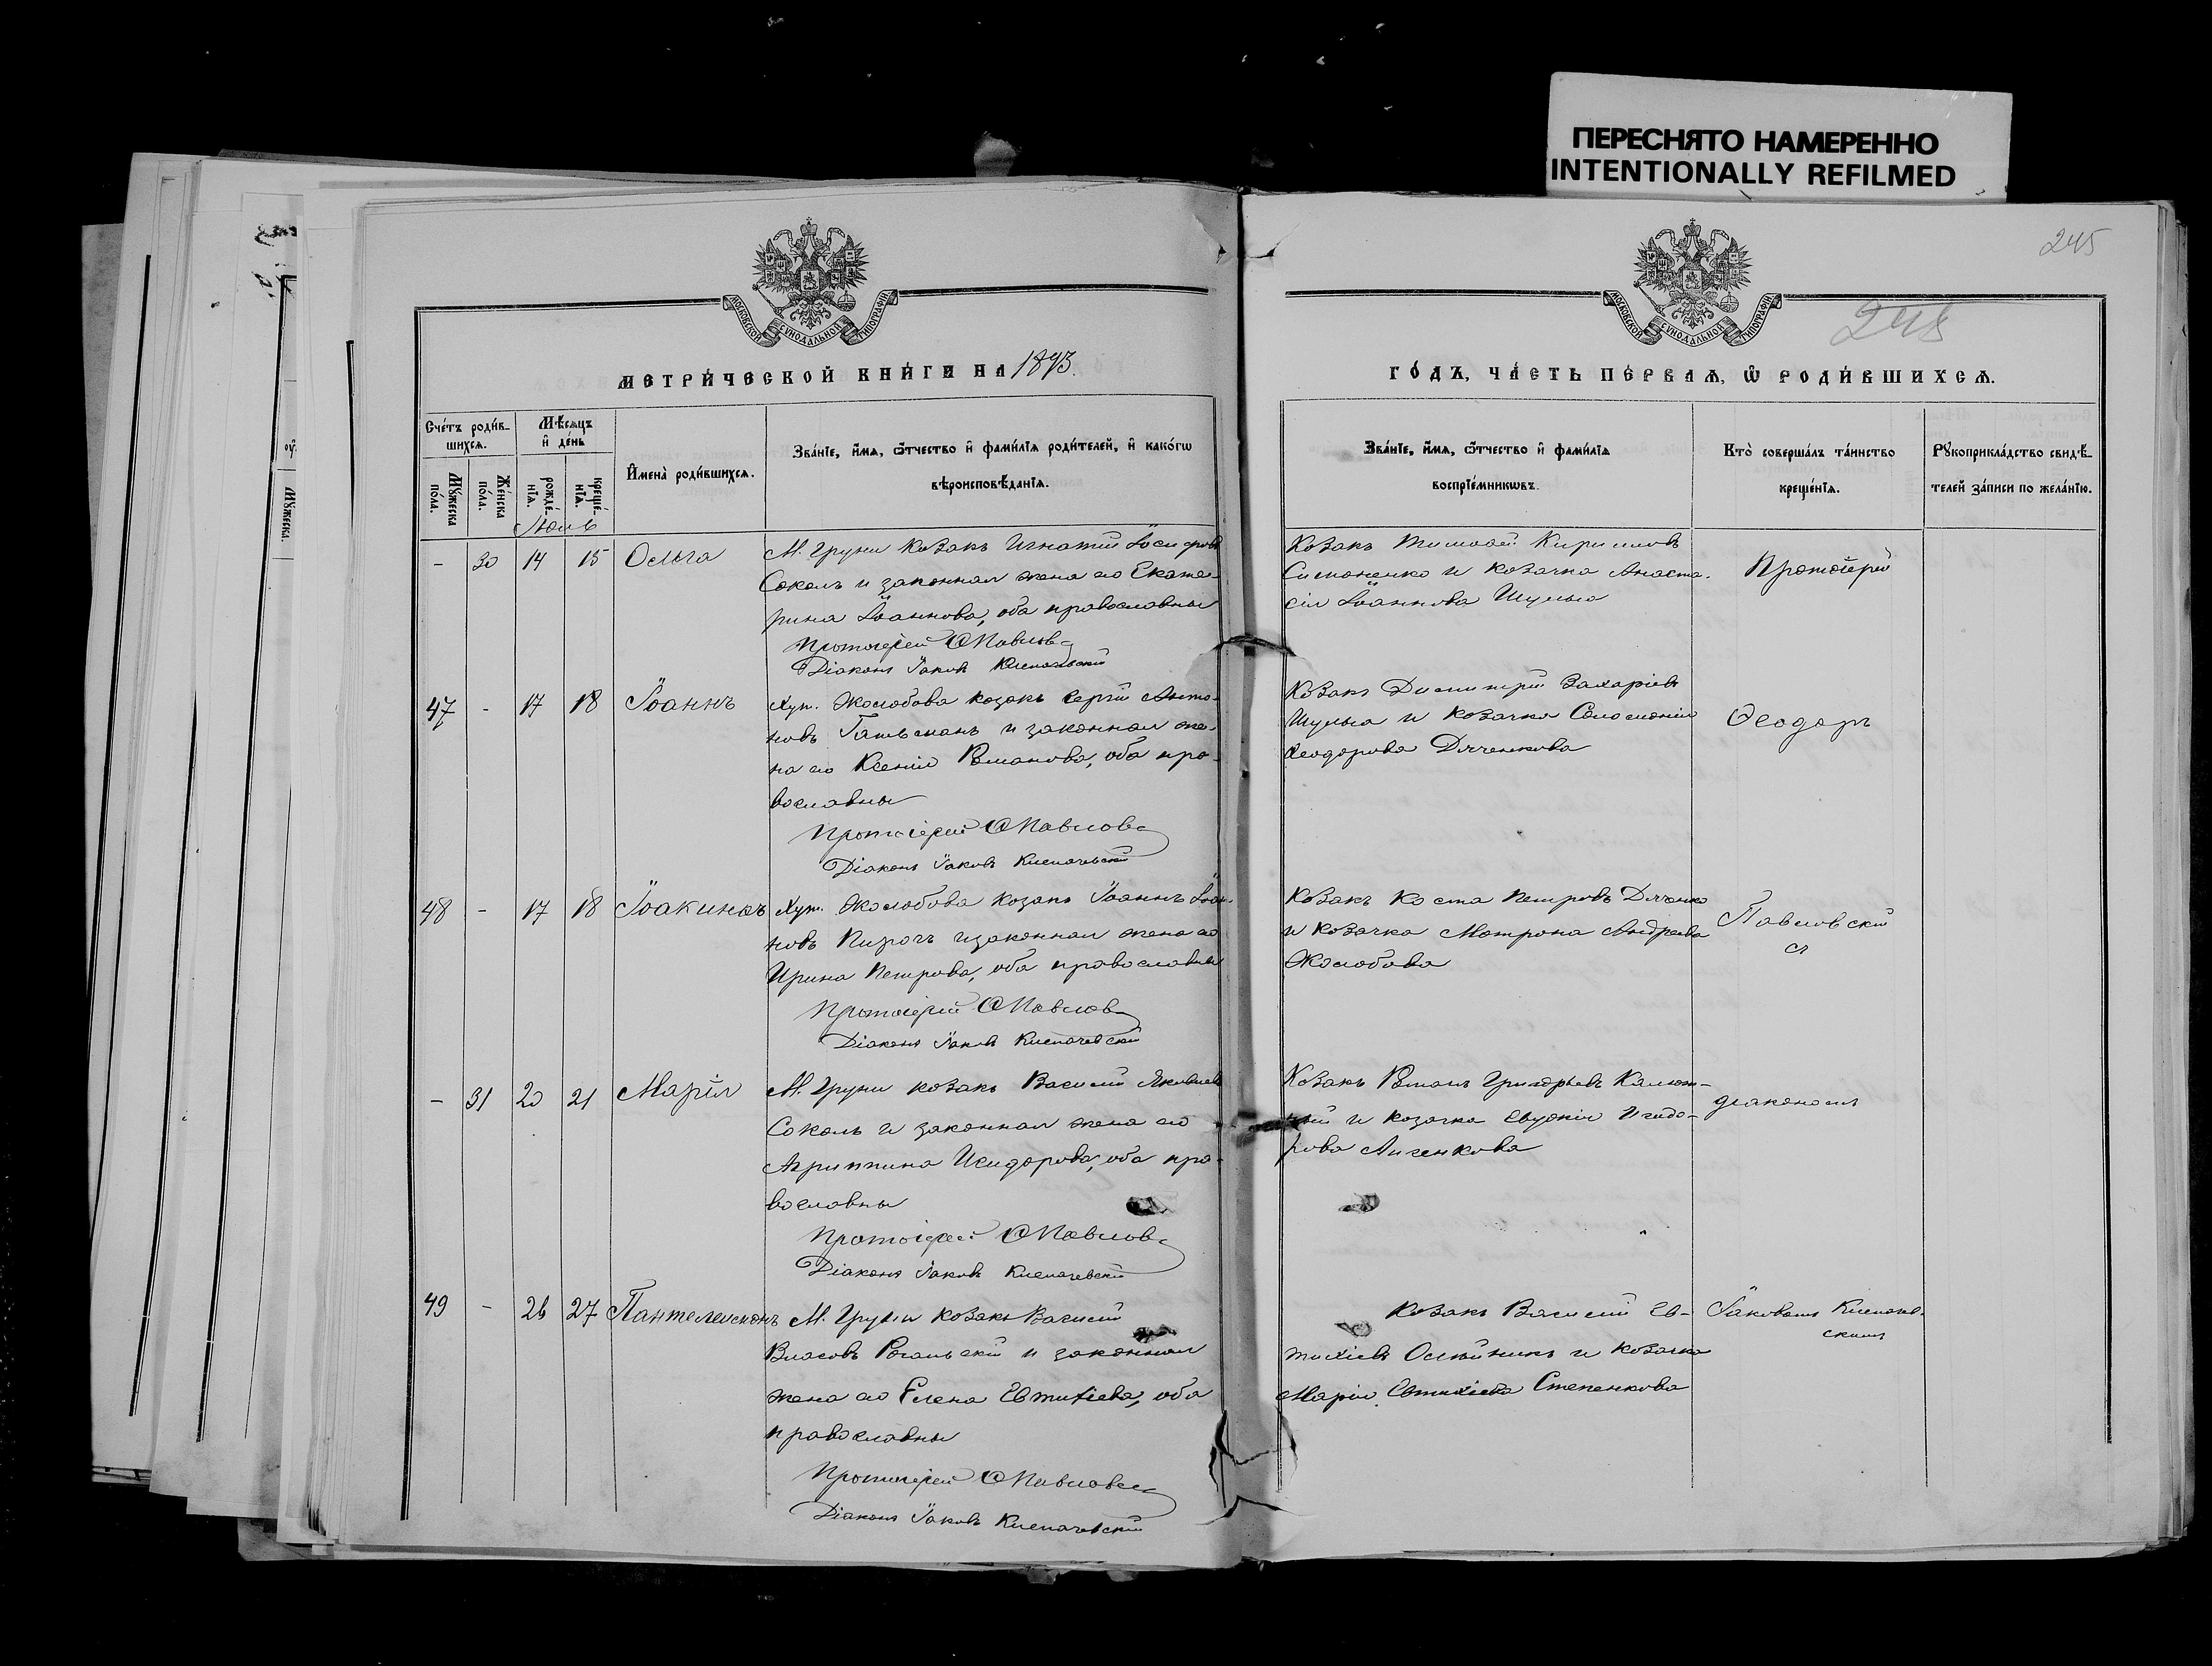 ПЕРЕСНЯТО НАМЕРЕННО
INTENTIONALLY REFILMED
245
245
МОСКОВСКОЙ СУНОДАЛЬНОЙ ТИПОГРАФІИ
МОСКОВСКОЙ СУНОДАЛЬНОЙ ТИПОГРАФІИ
МЕТРИ́ЧЕСКОЙ КНИ́ГИ НА 1893.
ГО́ДЪ, ЧА́СТЬ ПЕ́РВАѦ, Ѽ РОДИ́ВШИХСѦ.
Сче́тъ роди́в-
шихсѧ.
Мѣ́сѧцъ
и҆ де́нь
Мꙋ́жеска
по́ла.
Же́нска
по́ла.
рожде́-
нїѧ.
креще́-
нїѧ.
И҆мена̀ роди́вшихсѧ.
Зва́нїе, и҆́мѧ, ѻ҆́тчество и҆ фами́лїѧ роди́телей, и҆ како́гѡ
вѣроисповѣ́данїѧ.
Зва́нїе, и҆́мѧ, ѻ҆́тчество и҆ фами́лїѧ
воспрїе́мникѡвъ.
Кто̀ соверша́лъ та́инство
креще́нїѧ.
Рꙋкоприкла́дство свидѣ́-
телей за́писи по жела́нїю.
Мꙋ́жеска.
Июль
- 30 14 15 Ольга
М. Груни козакъ Игнатій Іосифовъ
Соколъ и законная жена его Екате-
рина Іоаннова, оба православны
Протоіерей Ѳ Павловс
Діаконъ Іаковъ Клепачевскій
Козакъ Тимоѳей Кирилловъ
Симоненко и козачка Анаста-
сія Іоаннова Шульга
Протоіерей
47 - 17 18 Іоаннъ
Хут. Жолобова козакъ Сергій Анто-
новъ Гатьманъ и законная же-
на его Ксенія Романова, оба пра-
вославны
Протоіерей Ѳ Павловс
Діаконъ Іаковъ Клепачевскій
Козакъ Димитрій Захаріевъ
Шульга и козачка Соломонія
Ѳеодорова Дяченкова
Ѳеодоръ
48 - 17 18 Іоакимъ
Хут. Жолобова козакъ Іоаннъ Іоан-
новъ Пирогъ и законная жена его
Ирина Петрова, оба православны
Протоіерей Ѳ Павловс
Діаконъ Іаковъ Клепачевскій
Козакъ Косма Петровъ Дяченко
и козачка Матрона Андреева
Жолобова
Павловскій
съ
- 31 20 21 Марія
М. Груни козакъ Василій Яковлевъ
Соколъ и законная жена его
Агриппина Исидорова, оба пра-
вославны
Протоіерей Ѳ Павловс
Діаконъ Іаковъ Клепачевскій
Козакъ Романъ Григорьевъ
и козачка Евдокія Исидо-
рова
діакономъ
49 - 26 27 Пантелеимонъ
М. Груни козакъ Василій
Власовъ Рогальскій и законная
жена его Елена Евтихіева, оба
православны
Протоіерей Ѳ Павловс
Діаконъ Іаковъ Клепачевскій
Козакъ Василій Ев-
тихіевъ Олейникъ и козачка
Марія Евтихіева Степенкова
Іаковомъ Клепачев-
скимъ